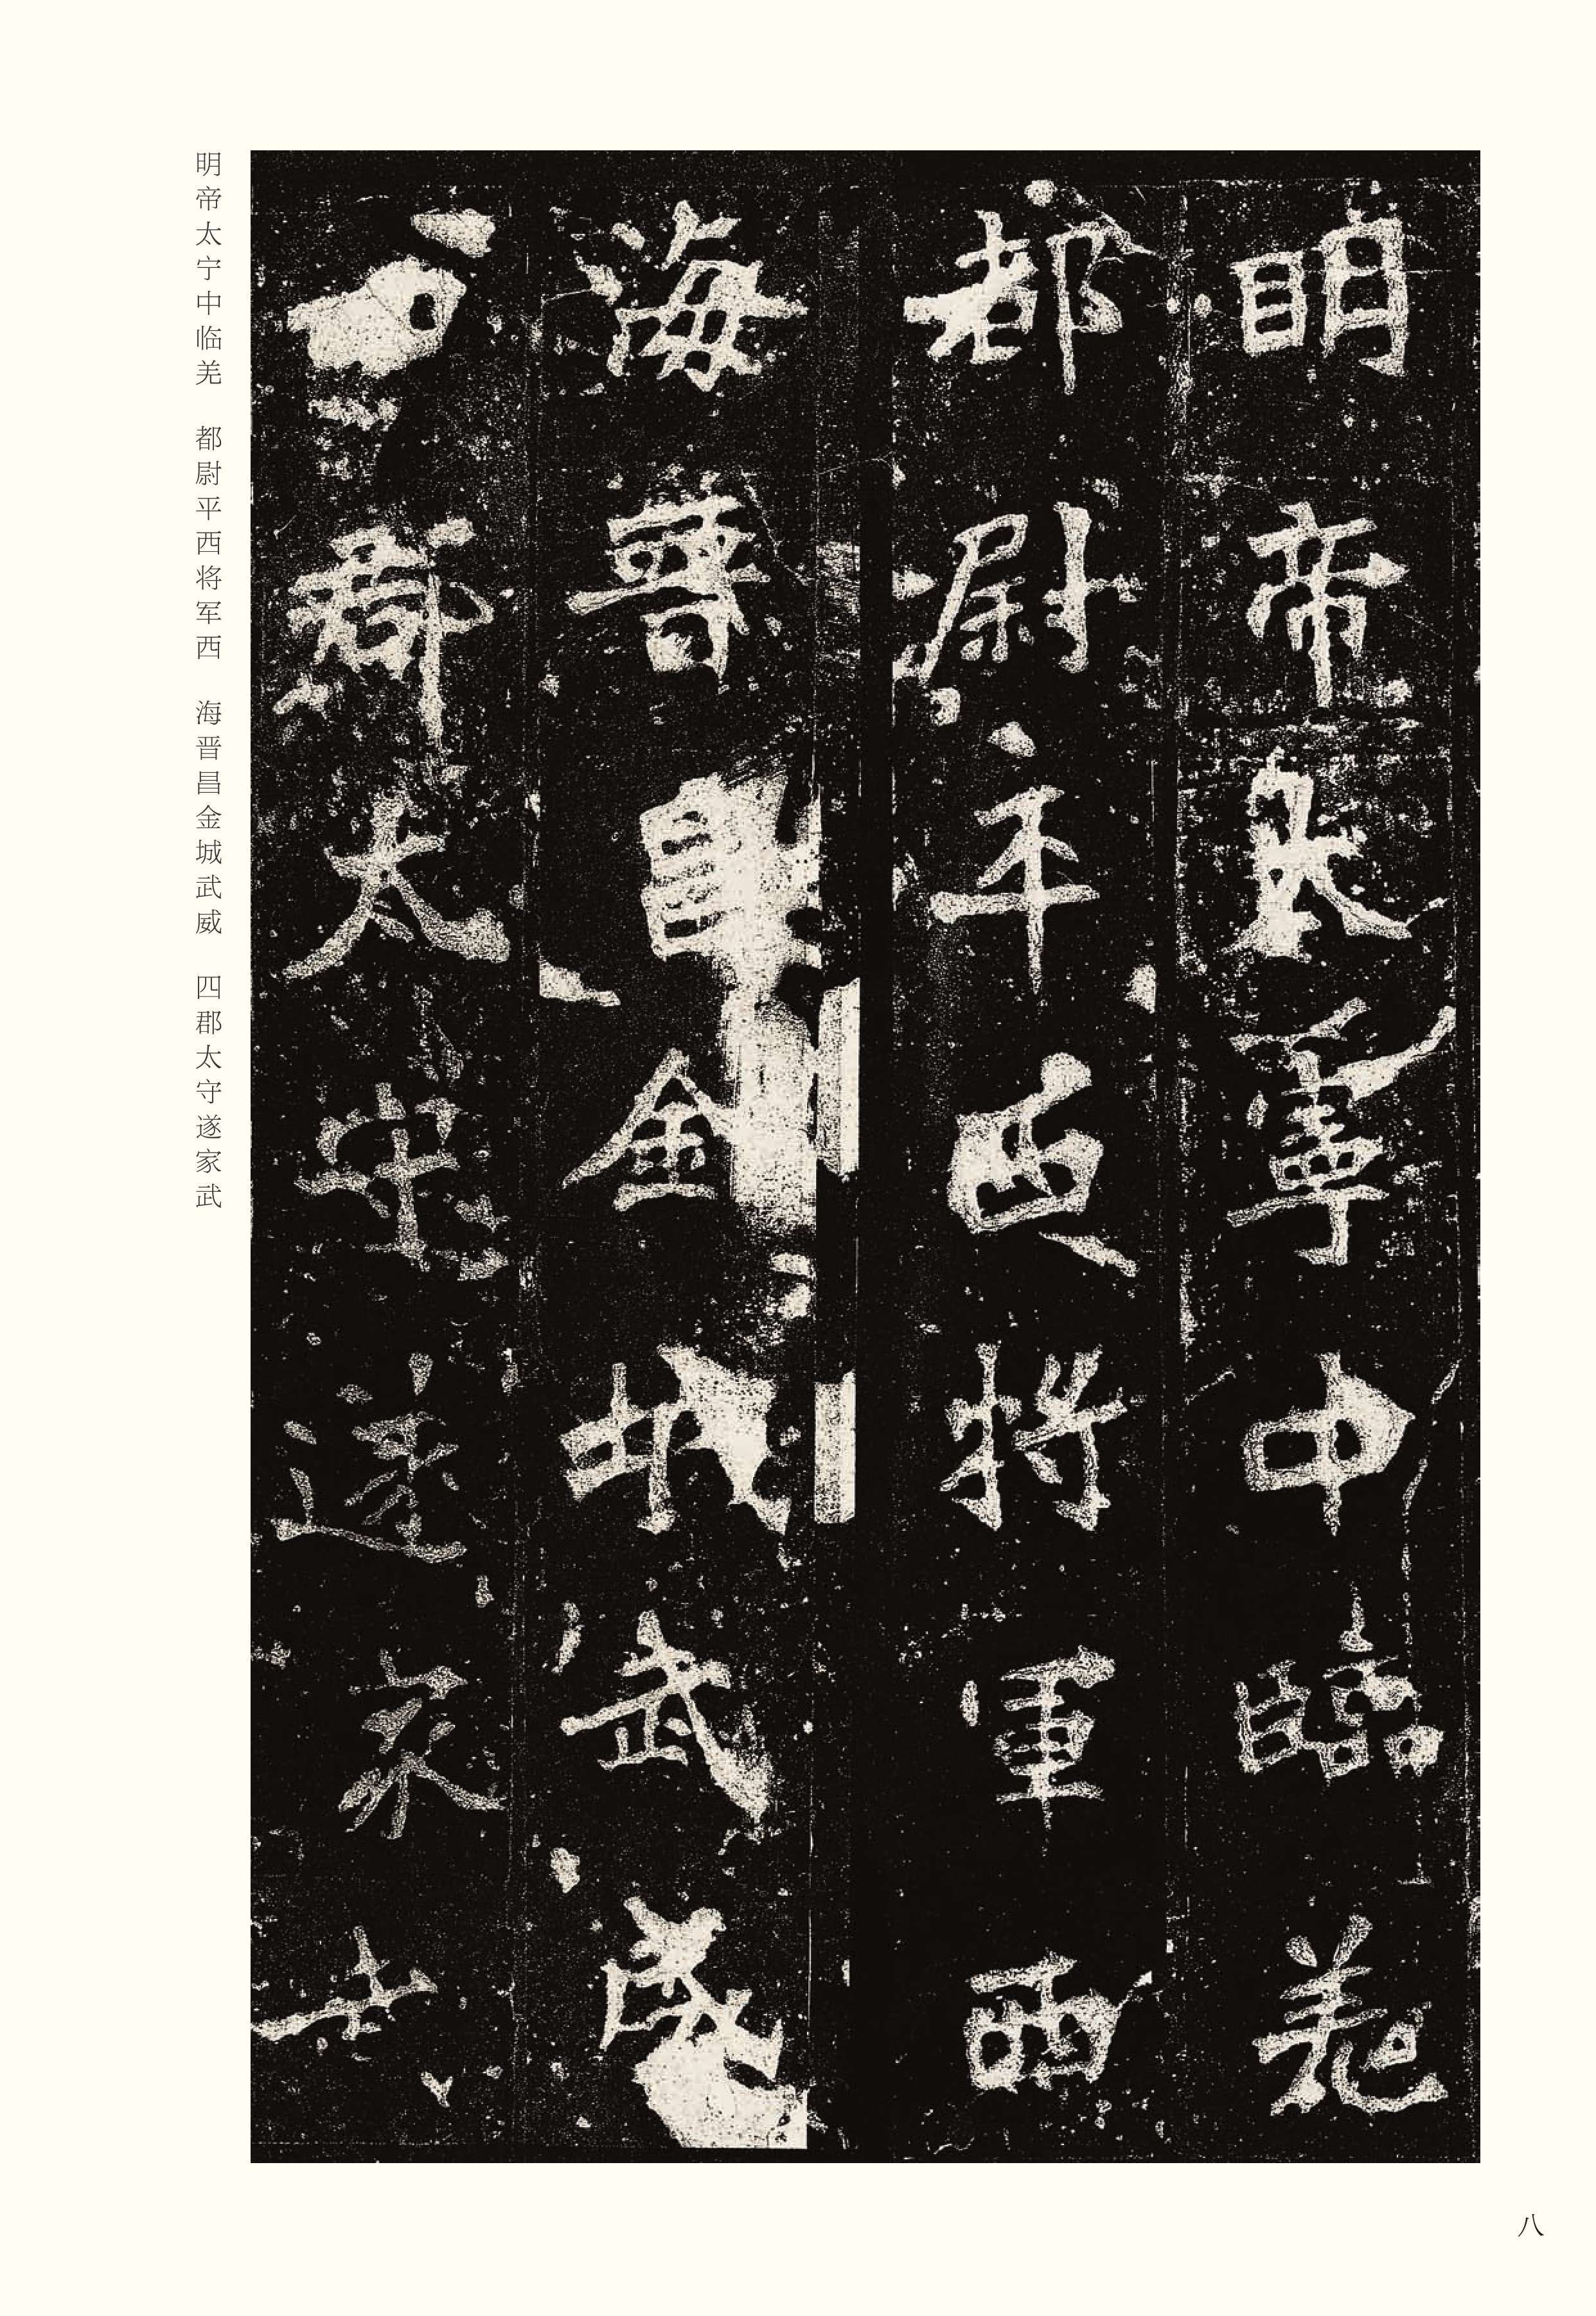 明帝太寧中臨羌
都尉平西将軍西
海晉昌金城武威
郡太守遂家武
明帝太宁中临羌　都尉平西将军西　海晋昌金城武威　四郡太守遂家武
八